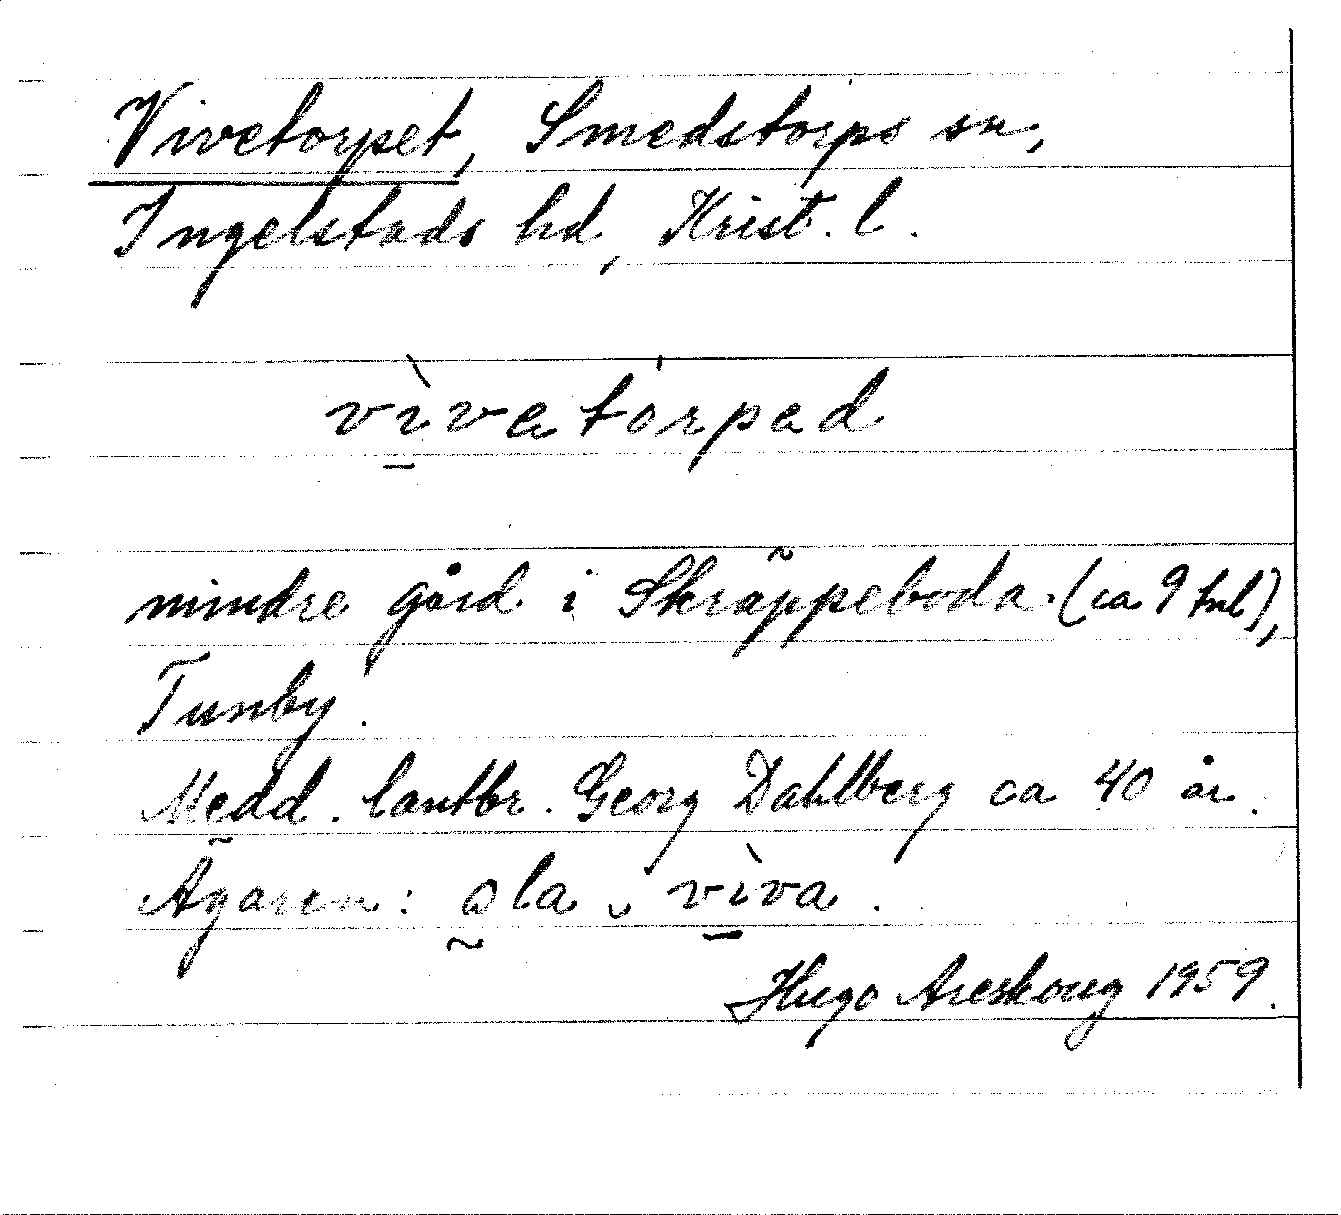 Vivetorpet, Smedstorps sn,
Ingelstads hd, Krist. l.
vìvatórpad
mindre gård i Skräppeboda (ca 9 tnl),
Tunby.
Medd. lantbr. Georg Dahlberg ca 40 år.
Ägaren: ola vìva.
Hugo Areskoug 1959.